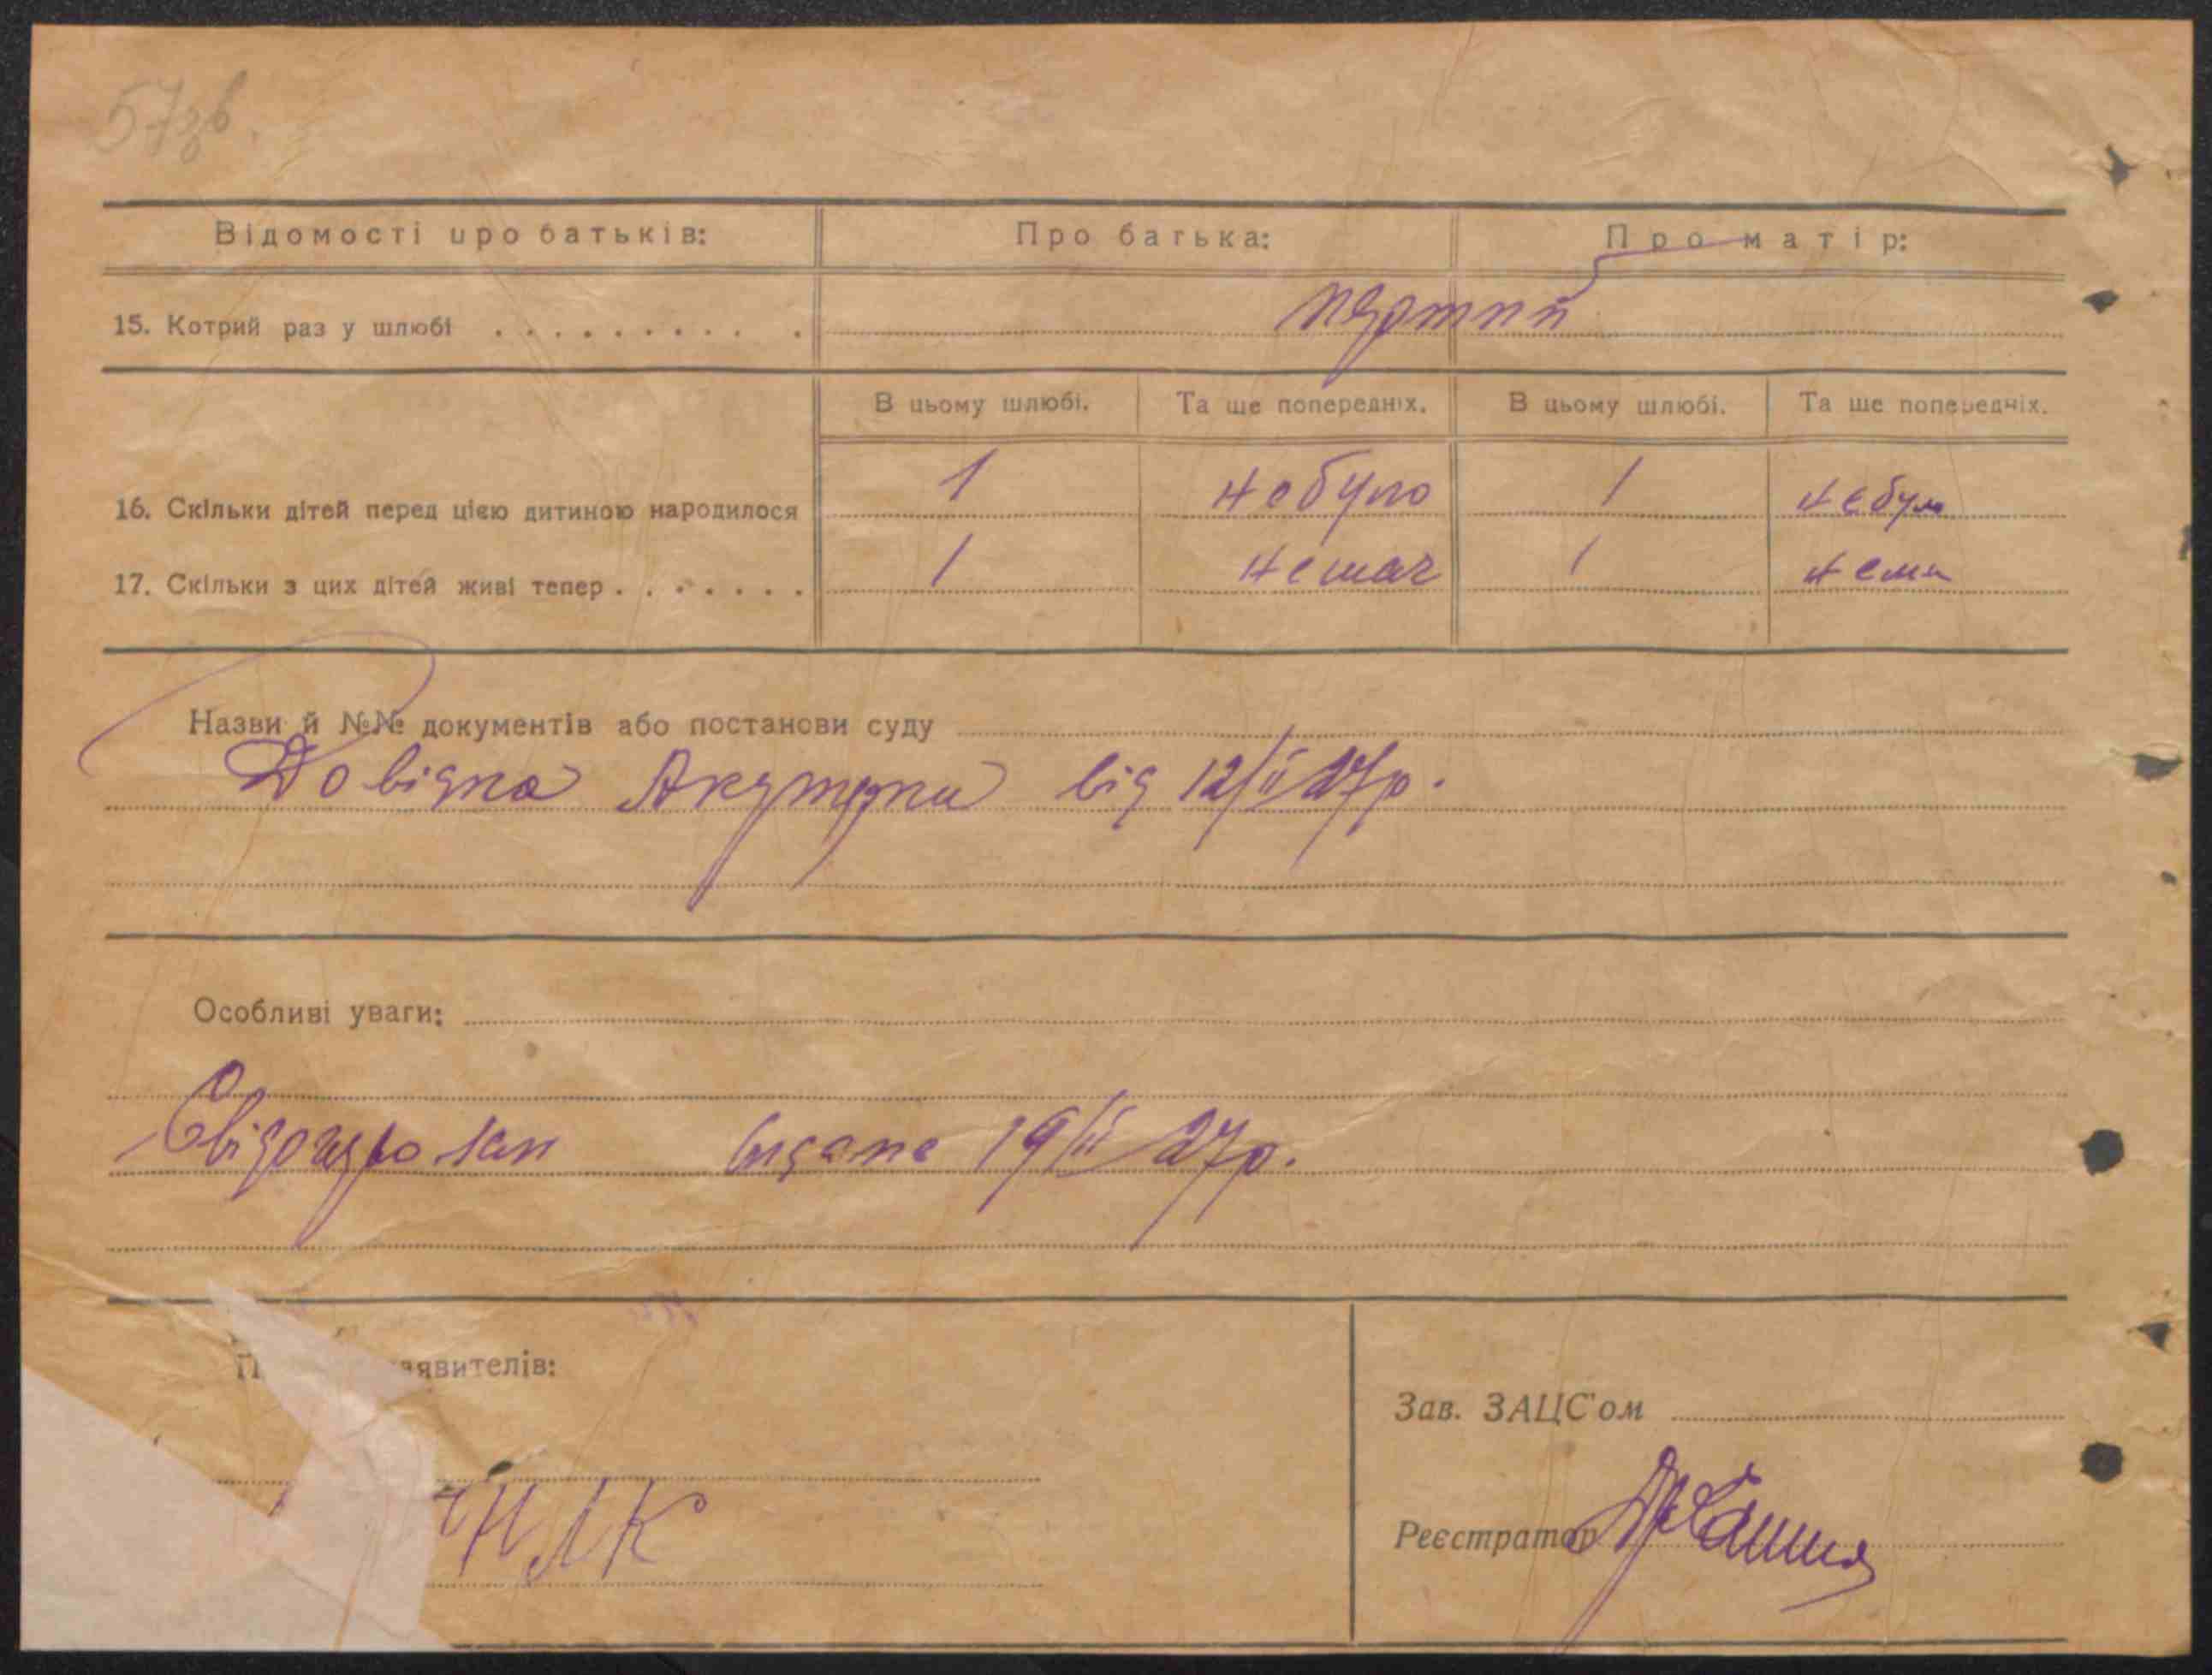 57зв.
Відомості про батьків: Про батька: Про матір:
15. Котрий раз у шлюбі . . . . . . . . . . перший
В цьому шлюбі. Та ще попередніх. В цьому шлюбі. Та ще попередніх.
16. Скільки дітей перед цією дитиною народилося 1 небуло 1 небуло
17. Скільки з цих дітей живі тепер . . . . . . . 1 немає 1 нема
Назви й №№ документів або постанови суду
Довідка Акушерки від 12/ІІ 27р.
Особливі уваги:
видане 19/ІІІ 27р.
П явителів:
Зав. ЗАЦС'ом
Реєстратор